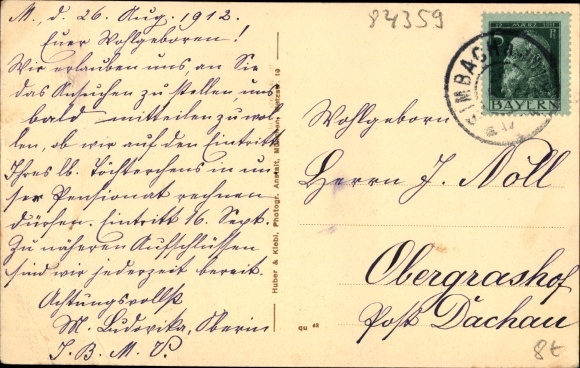 M., d. 26. Aug. 1912.
Euer Wohlgeboren!
Wir erlauben uns, an Sie
das Ansuchen zu stellen, uns
bald mitteilen zu wol-
len, ob wir auf den Eintritt
Ihres lb. Töchterchens in un-
ser Pensionat rechnen
dürfen. Eintritt 16. Sept.
Zu näheren Aufschlüssen
sind wir jederzeit bereit.
Achtungsvollst
M. Ludovika, Oberin
I. B. M. V.
Huber & Klebl, Photogr. Anstalt, München
84359
BAYERN
Wohlgeboren
Herrn J. Noll
Obergrashof
Post Dachau
8t